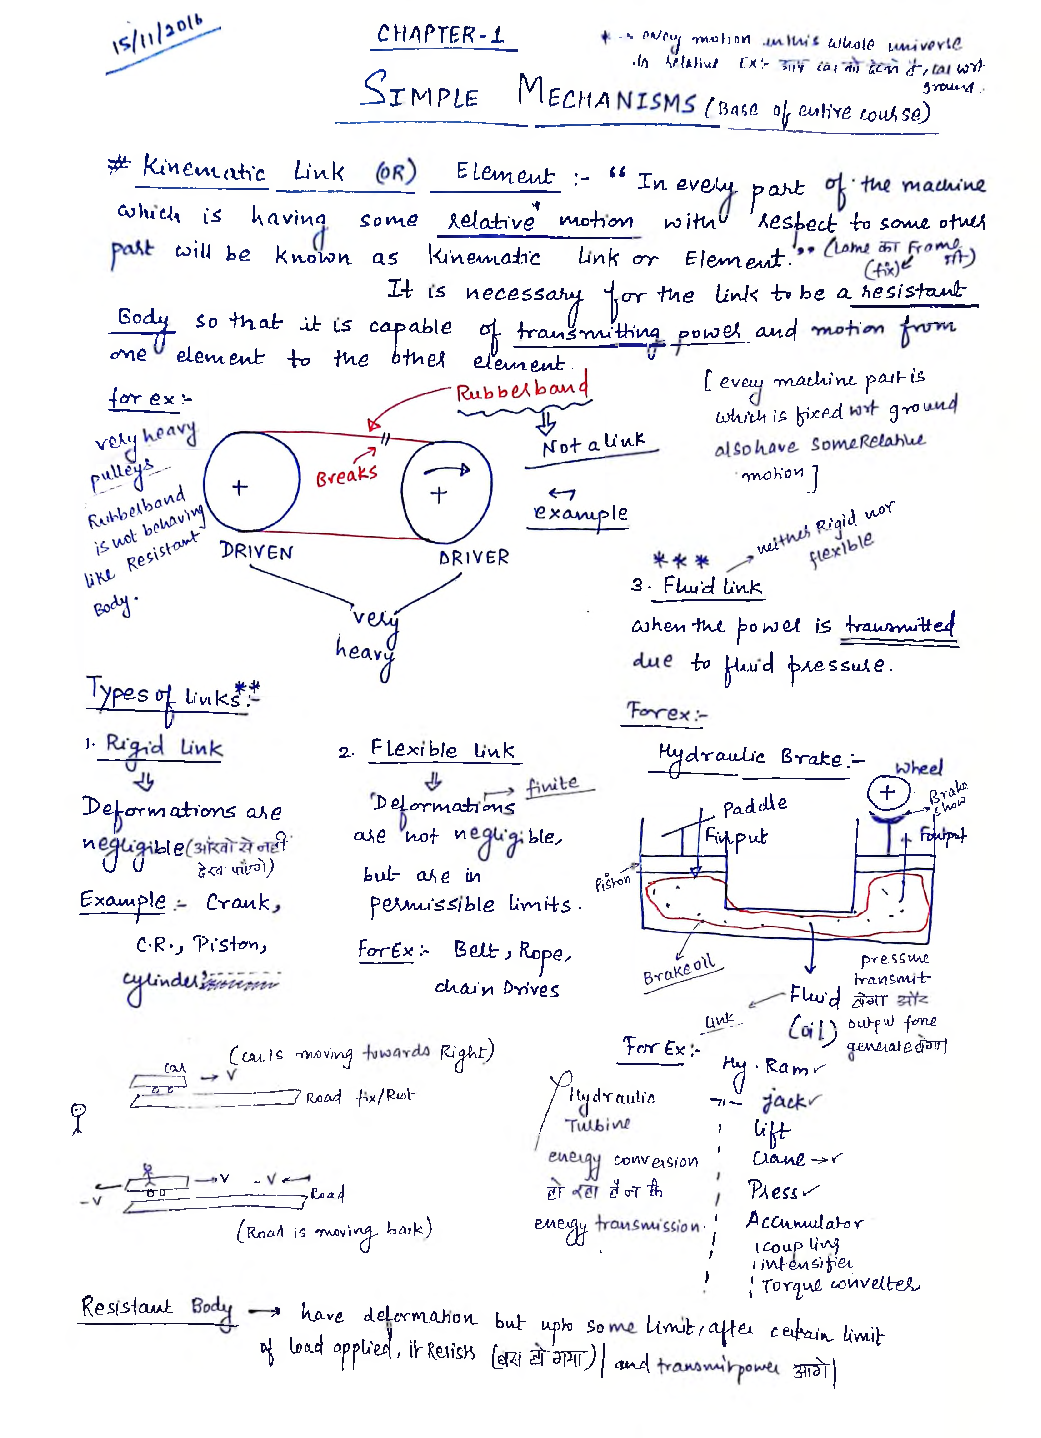 15/11/2016
CHAPTER-1
* → every motion in this whole universe
is relative Ex:- आप car को देखते हैं, car wrt
ground.
SIMPLE MECHANISMS (Base of entire course)
# Kinematic Link (OR) Element :- "In every part of the machine
which is having some relative* motion with respect to some other
part will be known as Kinematic Link or Element."
(Frame
(fix)
It is necessary for the link to be a resistant
Body so that it is capable of transmitting power and motion from
one element to the other element.
for ex:-
Rubberband
[every machine part is
which is fixed wrt ground
also have some Relative
motion]
very heavy
pulleys
Rubberband
is not behaving
like Resistant
Body.
Breaks
Not a link
example
DRIVEN
DRIVER
very
heavy
neither Rigid nor
flexible
***
3. Fluid link
when the power is transmitted
due to fluid pressure.
For ex:-
Hydraulic Brake:-
Types of links**:-
1. Rigid Link
Deformations are
negligible (आंखो से नहीं
देख पाएंगे)
Example:- Crank,
C.R., Piston,
cylinder
2. Flexible link
finite
Deformations
are not negligible,
but are in
permissible limits.
For Ex:- Belt, Rope,
chain Drives
wheel
Brake
shoe
Paddle
Finput
Foutput
Piston
Brake oil
Fluid
(oil)
pressure
transmit
होगा और
output force
generate होगा
link
For Ex:-
Hydraulic
Turbine
energy conversion
हो रहा है न कि
energy transmission.
Hy. Ram ✓
-"- jack ✓
lift
Crane → ✓
Press ✓
Accumulator
coupling
intensifier
Torque converter
(car is moving towards Right)
car
→ V
Road fix/Rest
→ V
-V ←
-V
Road
(Road is moving back)
Resistant Body → have deformation but upto some limit, after certain limit
of load applied, it Resists (बस हो गया) | and transmit power आगे |